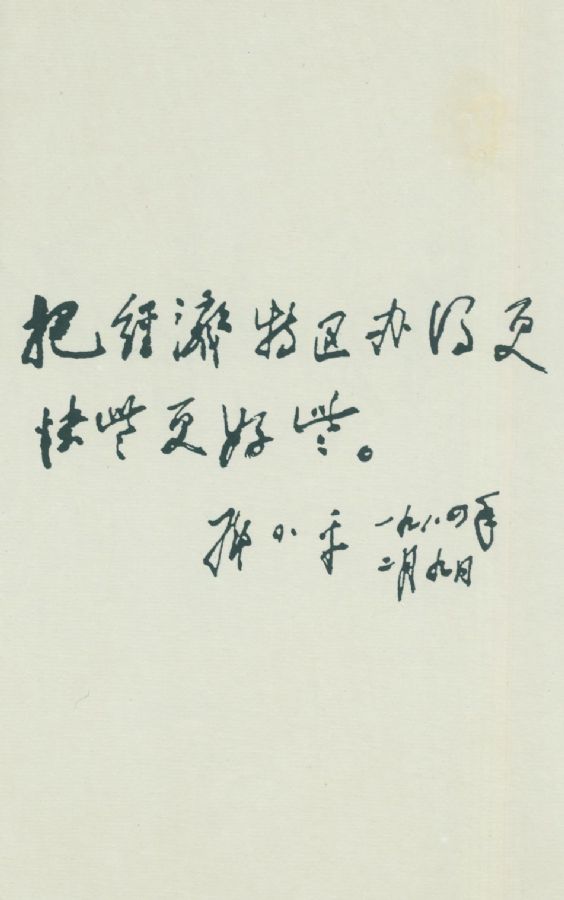 把經濟特区办得更
快些更好些。
邓小平 一九八四年
二月九日